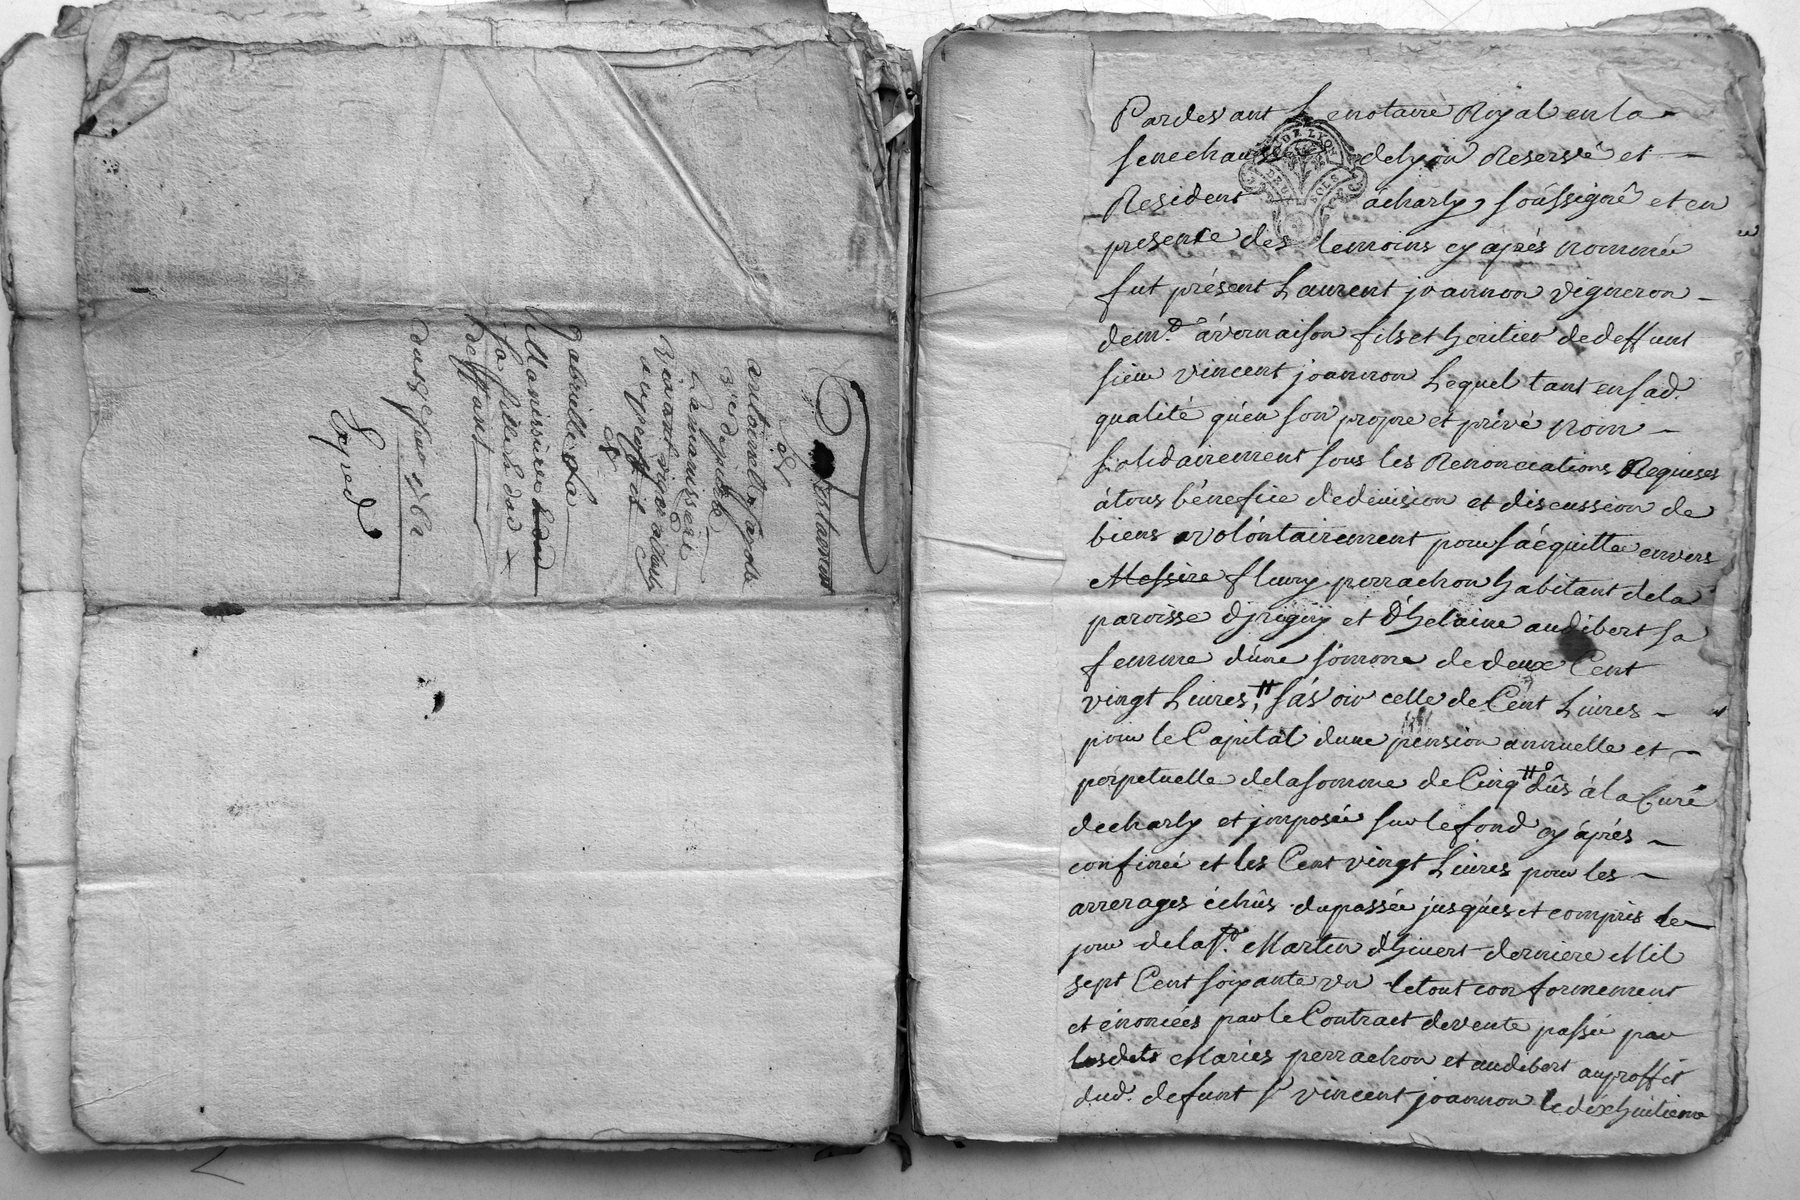 Testament
de
antoinette
vivant
Gabrielle La
Manissiere
sa fille Edad
deffiant
Exped
Pardevant Le notaire Royal en la
senechaussé de lyon Reservé et
Resident à charly, soússigné et en
presence des temoins cy aprés nommée
fut présent Laurent joannon vigneron
dem.t à vernaison fils et heritier de deffunt
sieur vincent joannon Lequel tant en sad.
qualité qúen son propre et privé nom
solidairement sous les Renonciations Requises
à tous bénefice de division et discussion de
biens volontairement pour sáequitter envers
Messire fleury perrachon habitant de la
paroisse djrigny et d'helaine audibert sa
femme d'úne somme de deux Cent
vingt Livres, sásvoir celle de Cent Livres
pour le Capital dune pension annuelle et
perpetuelle de la somme de Cinq tt dûs à la Curé
de charly et jmposée sur le fond cy áprés
confiné et les Cent vingt Livres pour les
arrerages échûs du passée jusqúes et compris le
jour de la st. Martin d'hivert derniere Mil
sept Cent soixante un le tout conformement
et énoncées par le Contract de vente passée par
lesdets Mariés perrachon et audibert au proffit
dud. defunt sr vincent joannon le dix huitieme
DE LYON
DEUX SOLS